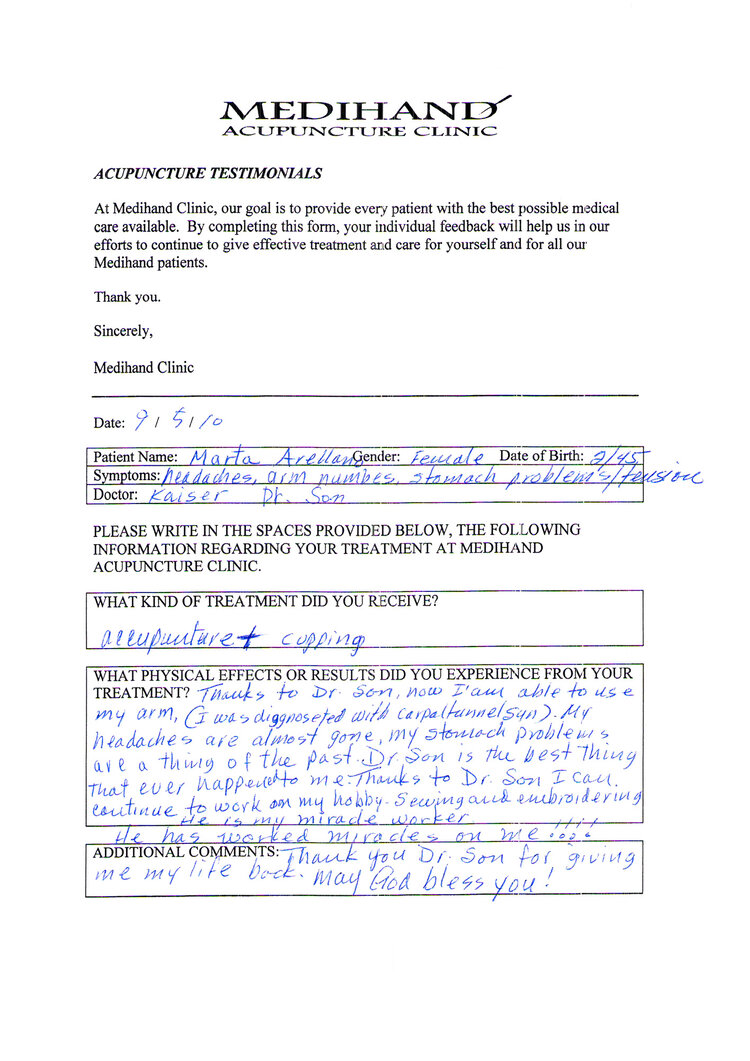 MEDIHAND
ACUPUNCTURE CLINIC
ACUPUNCTURE TESTIMONIALS
At Medihand Clinic, our goal is to provide every patient with the best possible medical
care available. By completing this form, your individual feedback will help us in our
efforts to continue to give effective treatment and care for yourself and for all our
Medihand patients.
Thank you.
Sincerely,
Medihand Clinic
Date: 9 / 5 / 10
Patient Name: Marta Arellano Gender: Female Date of Birth: 2/45
Symptoms: headaches, arm numbes, stomach problems/tension
Doctor: Kaiser Dr. Son
PLEASE WRITE IN THE SPACES PROVIDED BELOW, THE FOLLOWING
INFORMATION REGARDING YOUR TREATMENT AT MEDIHAND
ACUPUNCTURE CLINIC.
WHAT KIND OF TREATMENT DID YOU RECEIVE?
accupuncture + cupping
WHAT PHYSICAL EFFECTS OR RESULTS DID YOU EXPERIENCE FROM YOUR
TREATMENT? Thanks to Dr. Son, now I'am able to use
my arm, (I was diggnoseted with carpaltunnel syn). My
headaches are almost gone, my stomach problems
are a thing of the past. Dr. Son is the best thing
that ever happened to me. Thanks to Dr. Son I can
continue to work on my hobby. Sewing and embroidering
He is my miracle worker
He has worked miracles on me!!!!
ADDITIONAL COMMENTS: Thank you Dr. Son for giving
me my life back. May God bless you!